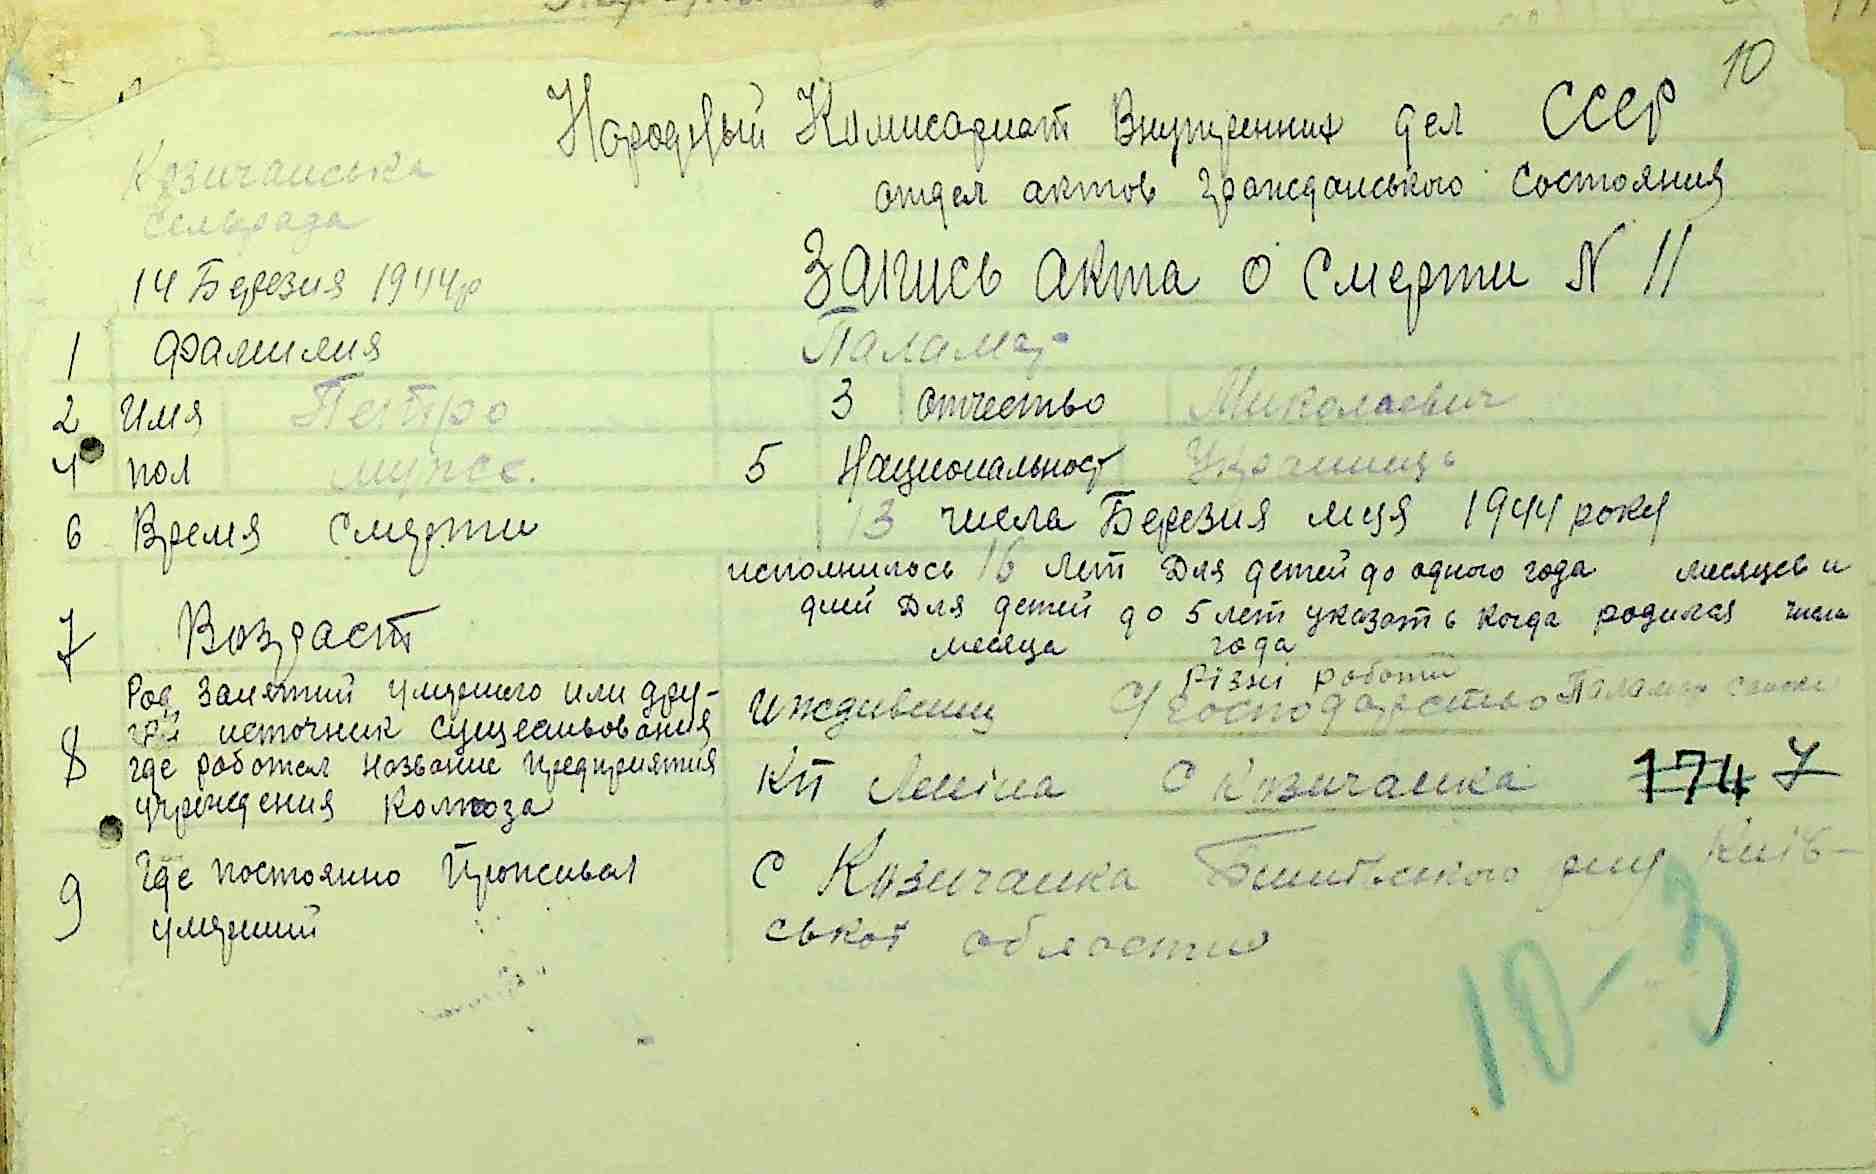 10
Народный Комисариат Внутренних дел СССР
отдел актов гражданського состояния
Козичанська
сельрада
14 Березня 1944р
Запись акта о смерти N 11
1 Фамилия Паламар
2 Имя Петро 3 отчество Миколаевич
4 пол мужс. 5 Националност Українець
6 Время смерти 13 числа Березня м-ця 1944 року
исполнилось 16 лет Для детей до одного года месяцев и
дней Для детей до 5 лет указать когда родился числа
месяца года
7 Возраст
8 Род занятий умершего или дру-
гой источник существования
где работал название предприятия
учреждения колхоза
Різні роботи
иждивенец С/Господарство Паламар
КП Леніна С Козичанка 174 7
9 Где постоянно проживал
умерший
С Козичанка р-ну Київ-
ської области
10-3